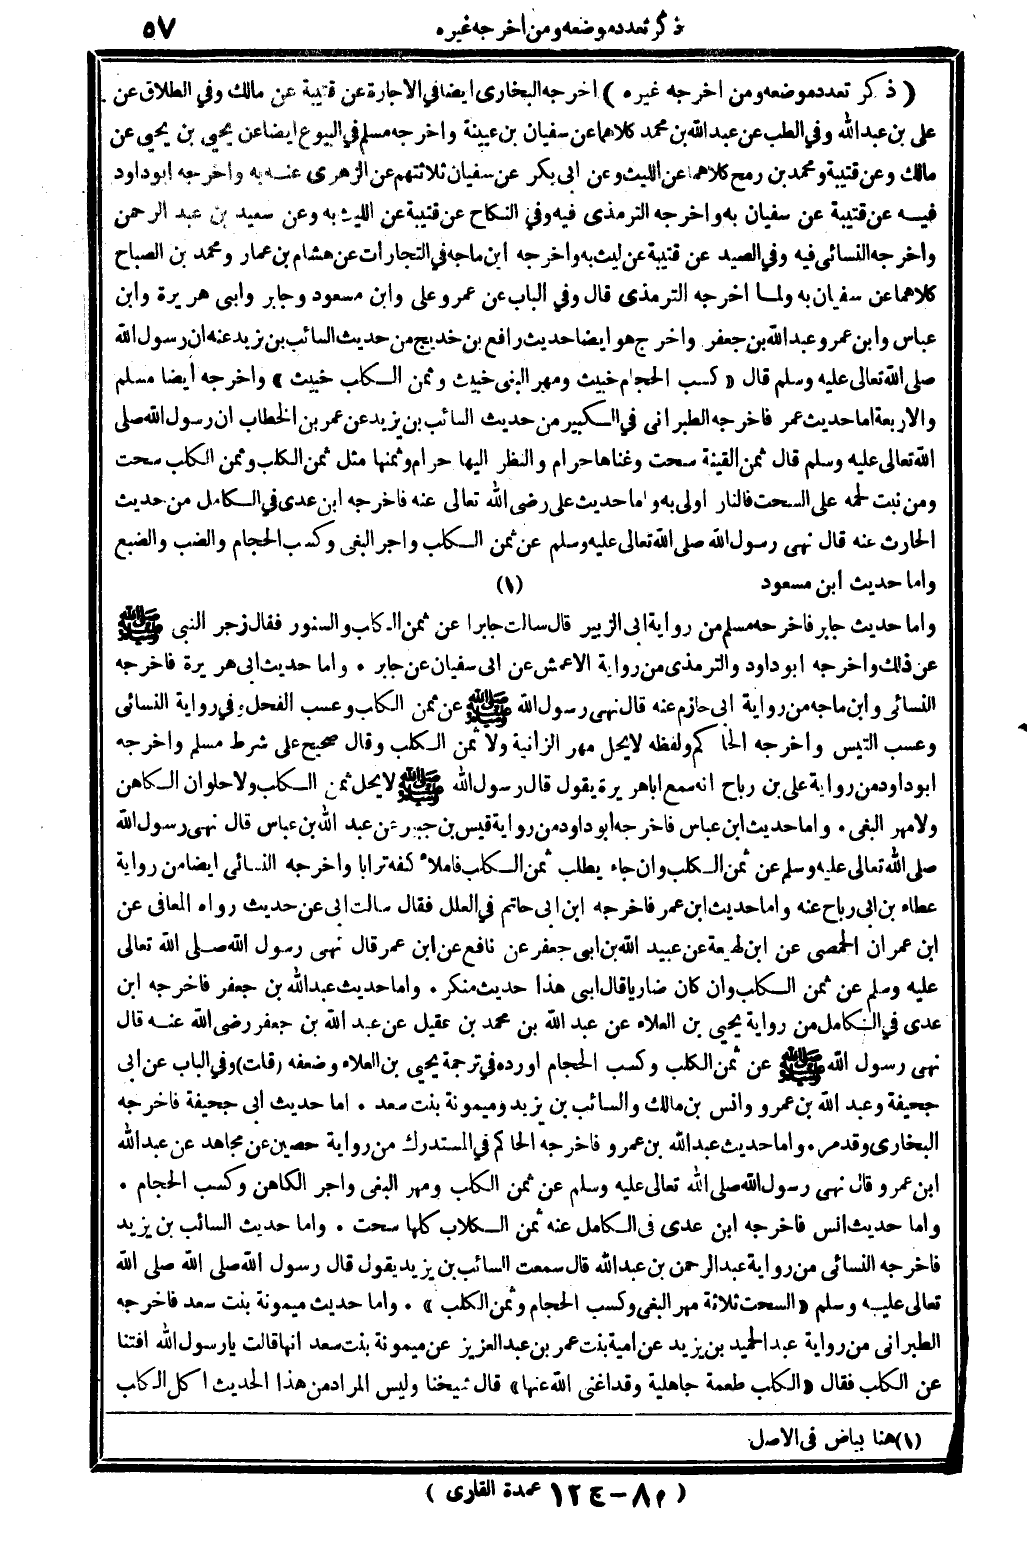 ذكر تعدد موضعه ومن أخرجه غيره ٥٧
( ذكر تعدد موضعه ومن اخرجه غيره ) اخرجه البخارى ايضا فى الاجارة عن قتيبة عن مالك وفى الطلاق عن
على بن عبد الله وفى الطب عن عبد الله بن محمد كلاهما عن سفيان بن عيينة واخرجه مسلم فى البيوع ايضا عن يحيى بن يحيى عن
مالك وعن قتيبة ومحمد بن رمح كلاهما عن الليث وعن ابى بكر عن سفيان ثلاثتهم عن الزهرى عنه به واخرجه ابو داود
فيه عن قتيبة عن سفيان به واخرجه الترمذى فيه وفى النكاح عن قتيبة عن الليث به وعن سعيد بن عبد الرحمن
واخرجه النسائى فيه وفى الصيد عن قتيبة عن ليث به واخرجه ابن ماجه فى التجارات عن هشام بن عمار ومحمد بن الصباح
كلاهما عن سفيان به ولما اخرجه الترمذى قال وفى الباب عن عمر وعلى وابن مسعود وجابر وابى هريرة وابن
عباس وابن عمر وعبد الله بن جعفر واخرج هو ايضا حديث رافع بن خديج من حديث السائب بن يزيد عنه ان رسول الله
صلى الله تعالى عليه وسلم قال « كسب الحجام خبيث ومهر البغى خبيث وثمن الكلب خبيث » واخرجه أيضا مسلم
والاربعة اما حديث عمر فاخرجه الطبرانى فى الكبير من حديث السائب بن يزيد عن عمر بن الخطاب ان رسول الله صلى
الله تعالى عليه وسلم قال ثمن القينة سحت وغناها حرام والنظر اليها حرام وثمنها مثل ثمن الكلب وثمن الكلب سحت
ومن نبت لحمه على السحت فالنار اولى به واما حديث على رضى الله تعالى عنه فاخرجه ابن عدى فى الكامل من حديث
الحارث عنه قال نهى رسول الله صلى الله تعالى عليه وسلم عن ثمن الكلب واجر البغى وكسب الحجام والضب والضبع
واما حديث ابن مسعود (١)
واما حديث جابر فاخرجه مسلم من رواية ابى الزبير قال سالت جابرا عن ثمن الكلب والسنور فقال زجر النبى ﷺ
عن ذلك واخرجه ابو داود والترمذى من رواية الاعمش عن ابى سفيان عن جابر . واما حديث ابى هريرة فاخرجه
النسائى وابن ماجه من رواية ابى حازم عنه قال نهى رسول الله ﷺ عن ثمن الكلب وعسب الفحل وفى رواية النسائى
وعسب التيس واخرجه الحاكم ولفظه لايحل مهر الزانية ولا ثمن الكلب وقال صحيح على شرط مسلم واخرجه
ابو داود من رواية على بن رباح انه سمع ابا هريرة يقول قال رسول الله ﷺ لايحل ثمن الكلب ولا حلوان الكاهن
ولا مهر البغى . واما حديث ابن عباس فاخرجه ابو داود من رواية قيس بن جبير عن عبد الله بن عباس قال نهى رسول الله
صلى الله تعالى عليه وسلم عن ثمن الكلب وان جاء يطلب ثمن الكلب فاملأ كفه ترابا واخرجه النسائى ايضا من رواية
عطاء بن ابى رباح عنه واما حديث ابن عمر فاخرجه ابن ابى حاتم فى العلل فقال سالت ابى عن حديث رواه المعافى عن
ابن عمران الحمصى عن ابن لهيعة عن عبيد الله بن ابى جعفر عن نافع عن ابن عمر قال نهى رسول الله صلى الله تعالى
عليه وسلم عن ثمن الكلب وان كان ضاريا قال ابى هذا حديث منكر . واما حديث عبد الله بن جعفر فاخرجه ابن
عدى فى الكامل من رواية يحيى بن العلاء عن عبد الله بن محمد بن عقيل عن عبد الله بن جعفر رضى الله عنه قال
نهى رسول الله ﷺ عن ثمن الكلب وكسب الحجام اورده فى ترجمة يحيى بن العلاء وضعفه (قلت) وفى الباب عن ابى
جحيفة وعبد الله بن عمرو وانس بن مالك والسائب بن يزيد وميمونة بنت سعد . اما حديث أبى جحيفة فاخرجه
البخارى وقد مر . واما حديث عبد الله بن عمرو فاخرجه الحاكم فى المستدرك من رواية حصين عن مجاهد عن عبد الله
ابن عمرو قال نهى رسول الله صلى الله تعالى عليه وسلم عن ثمن الكلب ومهر البغى واجر الكاهن وكسب الحجام .
واما حديث انس فاخرجه ابن عدى فى الكامل عنه ثمن الكلاب كلها سحت . واما حديث السائب بن يزيد
فاخرجه النسائى من رواية عبد الرحمن بن عبد الله قال سمعت السائب بن يزيد يقول قال رسول الله صلى الله صلى الله
تعالى عليه وسلم « السحت ثلاثة مهر البغى وكسب الحجام وثمن الكلب » . واما حديث ميمونة بنت سعد فاخرجه
الطبرانى من رواية عبد الحميد بن يزيد عن امية بنت عمر بن عبد العزيز عن ميمونة بنت سعد انها قالت يارسول الله افتنا
عن الكلب فقال « الكلب طعمة جاهلية وقد اغنى الله عنها » قال شيخنا وليس المراد من هذا الحديث اكل الكلب
(١) هنا بياض فى الاصل
( م ٨ - ج ١٢ عمدة القارى )